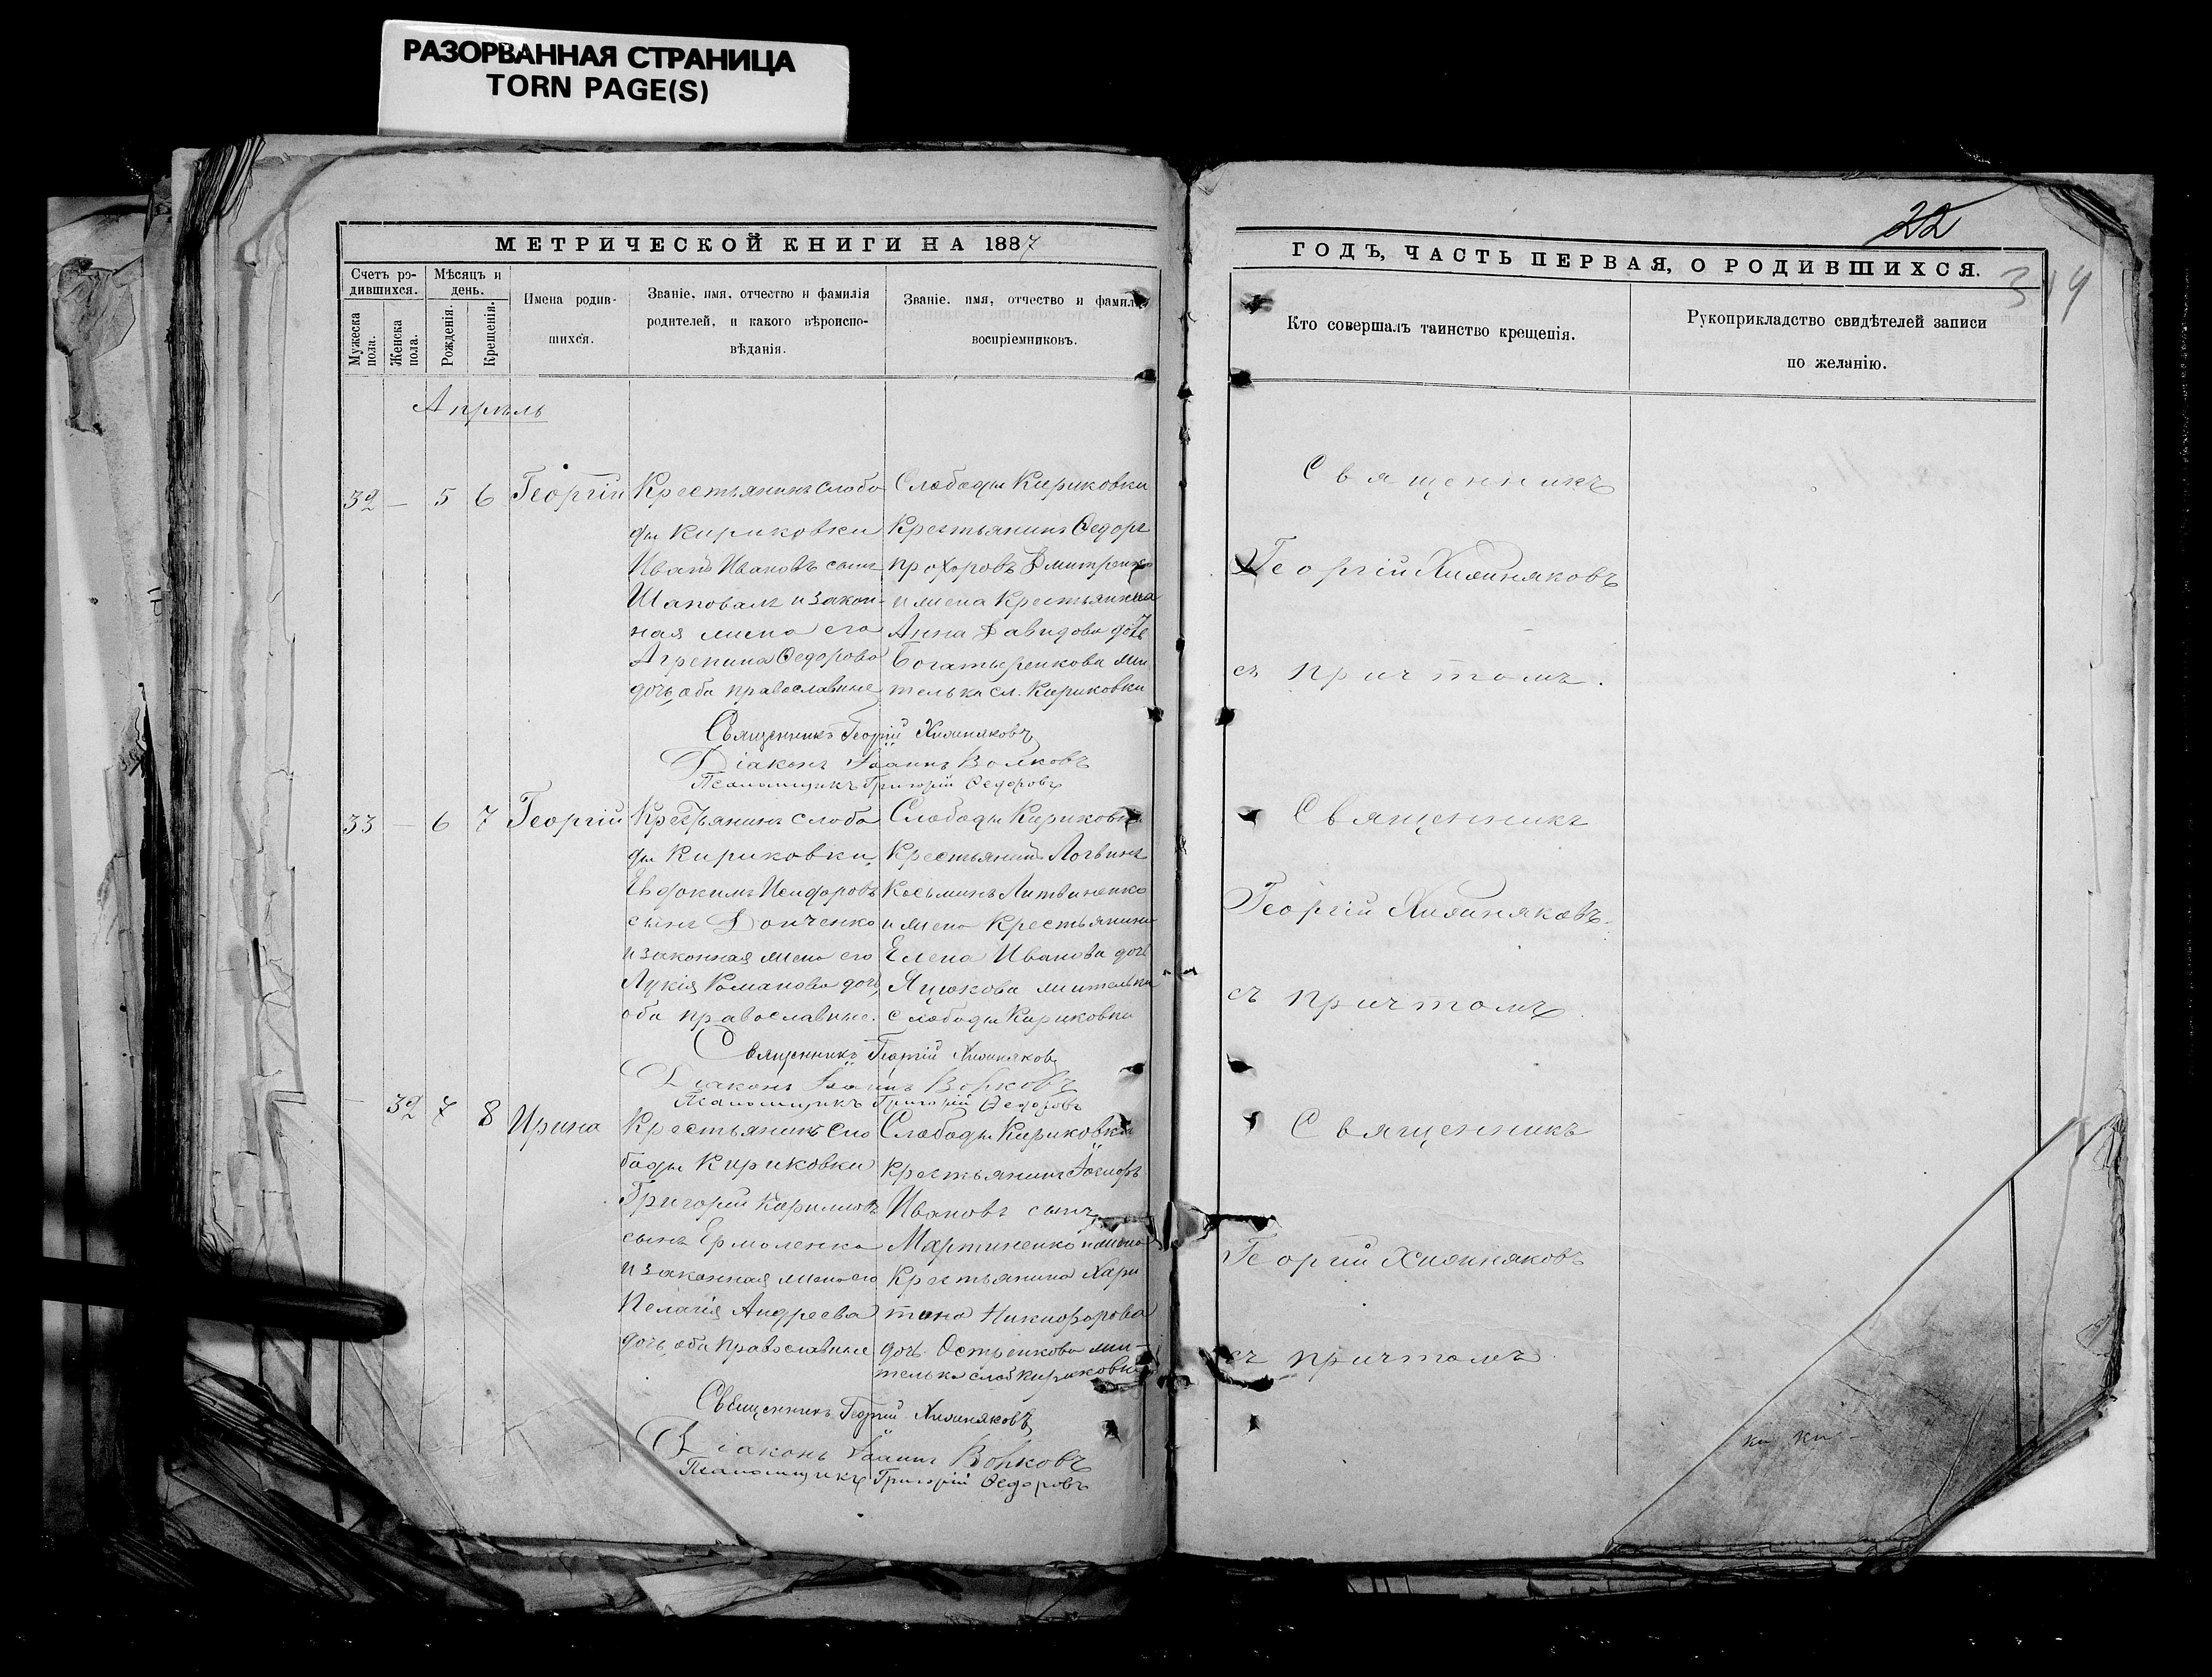 РАЗОРВАННАЯ СТРАНИЦА
TORN PAGE(S)
МЕТРИЧЕСКОЙ КНИГИ НА 1887
Счетъ ро-
дившихся.
Мужеска
пола.
Женска
пола.
Мѣсяцъ и
день.
Рожденія.
Крещенія.
Имена родив-
шихся.
Званіе, имя, отчество и фамилія
родителей, и какого вѣроиспо-
вѣданія.
Званіе, имя, отчество и фамилія
воспріемниковъ.
Апрѣль
32 — 5 6 Георгій
Крестьянинъ слобо
ды Кириковки
Иванъ Ивановъ сынъ
Шаповалъ и закон-
ная жена его
Агрепина Ѳедорова
дочь, оба православные
Слободы Кириковки
Крестьянинъ Ѳедоръ
Прохоровъ Дмитренко
и жена Крестьянина
Анна Давидова дочь
Богатыренкова жи
телька сл. Кириковки
Священникъ Георгій Хижняковъ
Діаконъ Іоаннъ Волковъ
Псаломщикъ Григорій Ѳедоровъ
33 — 6 7 Георгій
Крестьянинъ слобо
ды Кириковки,
Евдокимъ Исидоровъ
сынъ Донченко
и законная жена его
Лукія Романова дочь,
оба православные.
Слободы Кириковки
Крестьянинъ Логвинъ
Косьминъ Литвиненко
и жена Крестьянина
Елена Иванова дочь
Яцюкова жителька
слободы Кириковки
Священникъ Георгій Хижняковъ
Діаконъ Іоаннъ Волковъ
Псаломщикъ Григорій Ѳедоровъ
— 32 7 8 Ирина
Крестьянинъ Сло
боды Кириковки
Григорій Кириловъ
сынъ Ермоленко
и законная жена его
Пелагія Андреева
дочь, оба православные
Слободы Кириковки
Крестьянинъ
Ивановъ сынъ
Мартиненко и жена
Крестьянина Хари
тина Никифорова
дочь Остренкова жи-
телька слоб Кириковки
Священникъ Георгій Хижняковъ
Діаконъ Іоаннъ Волковъ
Псаломщикъ Григорій Ѳедоровъ
22
314
ГОДЪ, ЧАСТЬ ПЕРВАЯ, О РОДИВШИХСЯ.
Кто совершалъ таинство крещенія.
Рукоприкладство свидѣтелей записи
по желанію.
Священникъ
Георгій Хижняковъ
съ причтомъ.
Священникъ
Георгій Хижняковъ.
съ причтомъ
Священникъ
Георгій Хижняковъ
съ причтомъ